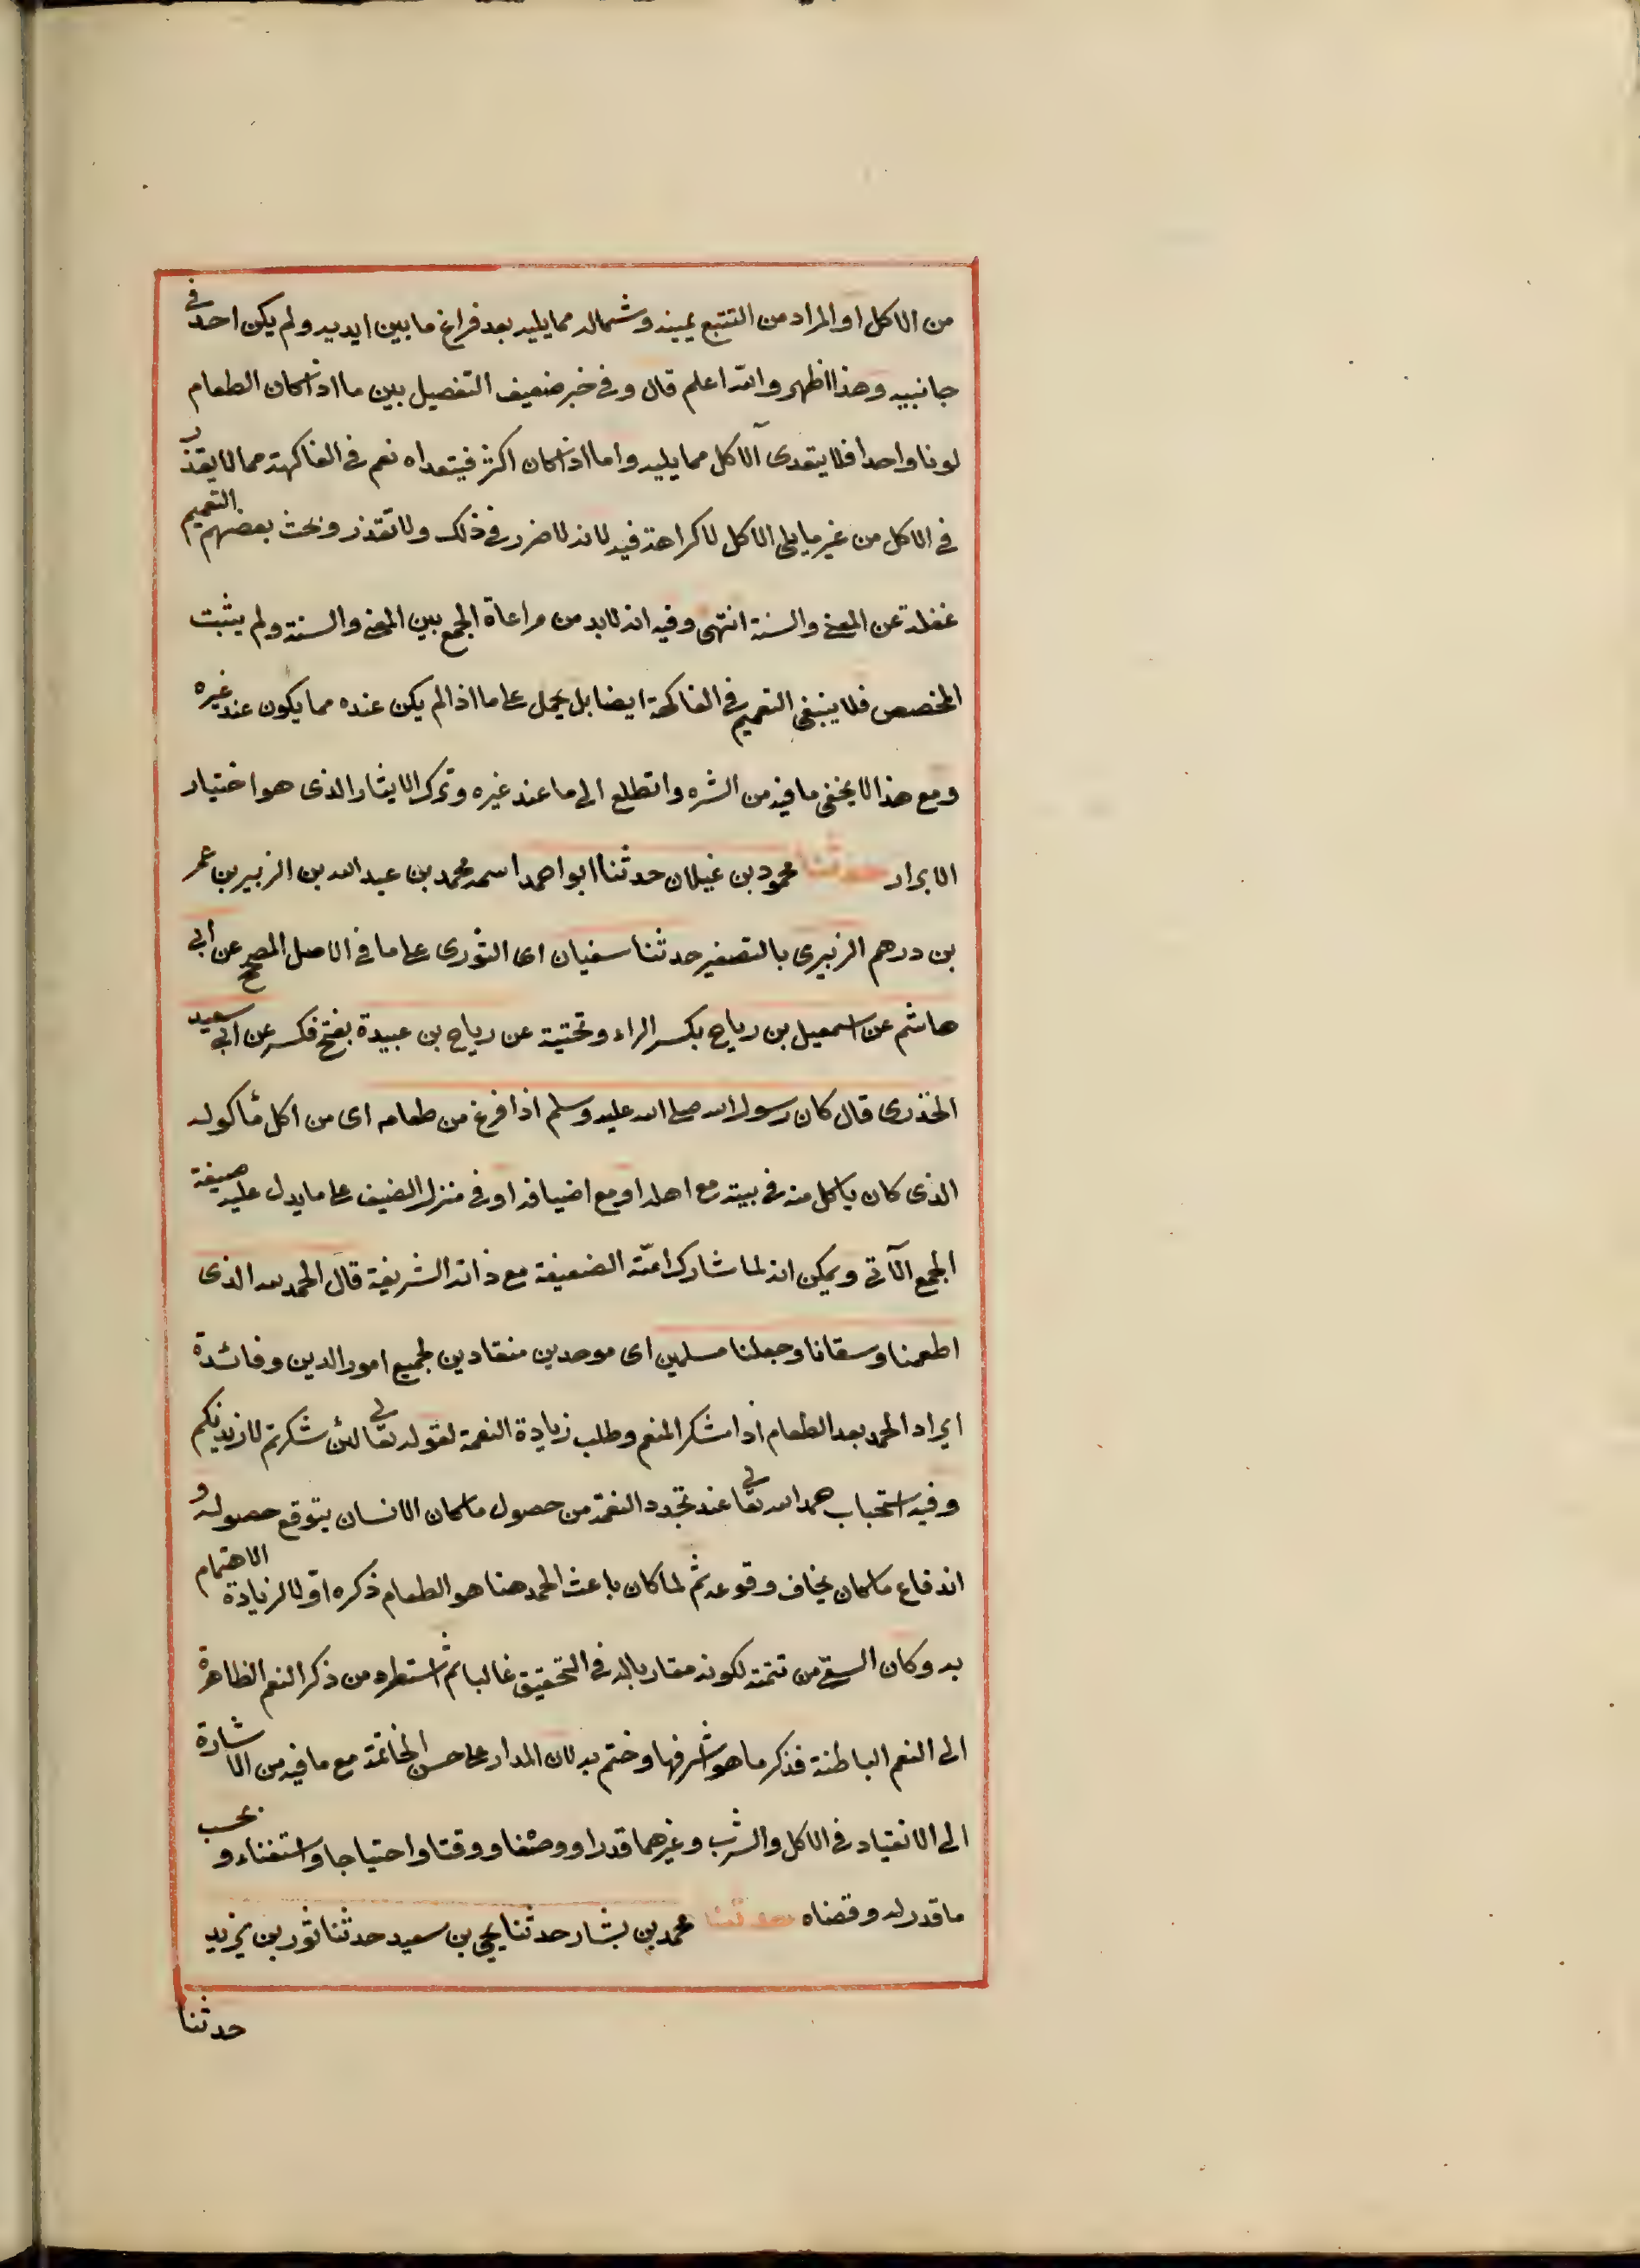 من الاكل او المراد من التتبع يمينه وشماله مما يليه بعد فراغ ما بين ايديه ولم يكن احد في
جانبيه وهذا اظهر والله اعلم قال وفي خبر ضعيف التفصيل بين ما اذا كان الطعام
لونا واحدا فلا يتعدى الآكل مما يليه واما اذا كان اكثر فيتعداه نعم في الفاكهة مما لا يقذر
في الاكل من غير ما يلي الاكل لا كراهة فيه لانه لا ضرر في ذلك ولا تقذر وبحث بعضهم التعميم
غفلة عن المعنى والسنة انتهى وفيه انه لا بد من مراعاة الجمع بين المعنى والسنة ولم يثبت
المخصص فلا ينبغي التعميم في الفاكهة ايضا بل يحمل على ما اذا لم يكن عنده مما يكون عند غيره
ومع هذا لا يخفى ما فيه من الشره واتطلع الى ما عند غيره وترك الايثار الذى هو اختيار
الابرار حدثنا محمود بن غيلان حدثنا ابو احمد اسمه محمد بن عبد الله بن الزبير بن عمر
بن درهم الزبيرى بالتصغير حدثنا سفيان اى الثورى على ما في الاصل المصحح عن ابي
هاشم عن اسمعيل بن رياح بكسر الراء وتحتية عن رياح بن عبيدة بفتح فكسر عن ابي سعيد
الخدرى قال كان رسول الله صلى الله عليه وسلم اذا فرغ من طعامه اى من اكل مأكوله
الذى كان ياكل منه في بيته مع اهله او مع اضيافه او في منزل الضيف على ما يدل عليه صيغة
الجمع الآتي ويمكن انه لما شارك امّته الضعيفة مع ذاته الشريفة قال الحمد لله الذى
اطعمنا وسقانا وجعلنا مسلمين اى موحدين منقادين لجميع امور الدين وفائدة
ايراد الحمد بعد الطعام اداء شكر المنعم وطلب زيادة النعمة لقوله تعالى لئن شكرتم لازيدنكم
وفيه استحباب حمد الله تعالى عند تجدد النعمة من حصول ما كان الانسان يتوقع حصوله و
اندفاع ما كان يخاف وقوعه ثم لما كان باعث الحمد هنا هو الطعام ذكره اوّلا لزيادة الاهتمام
به وكان السقي من تتمته لكونه مقارنا له في التحقيق غالبا ثم استطرد من ذكر النعم الظاهرة
الى النعم الباطنة فذكر ما هو اشرفها وختم به لان المدار على حسن الخاتمة مع ما فيه من الاشارة
الى الانقياد في الاكل والشرب وغيرهما قدرا ووصفا ووقتا واحتياجا واستغناء و بحسب
ما قدر له وقضاه حدثنا محمد بن بشار حدثنا يحيى بن سعيد حدثنا ثور بن يزيد
حدثنا